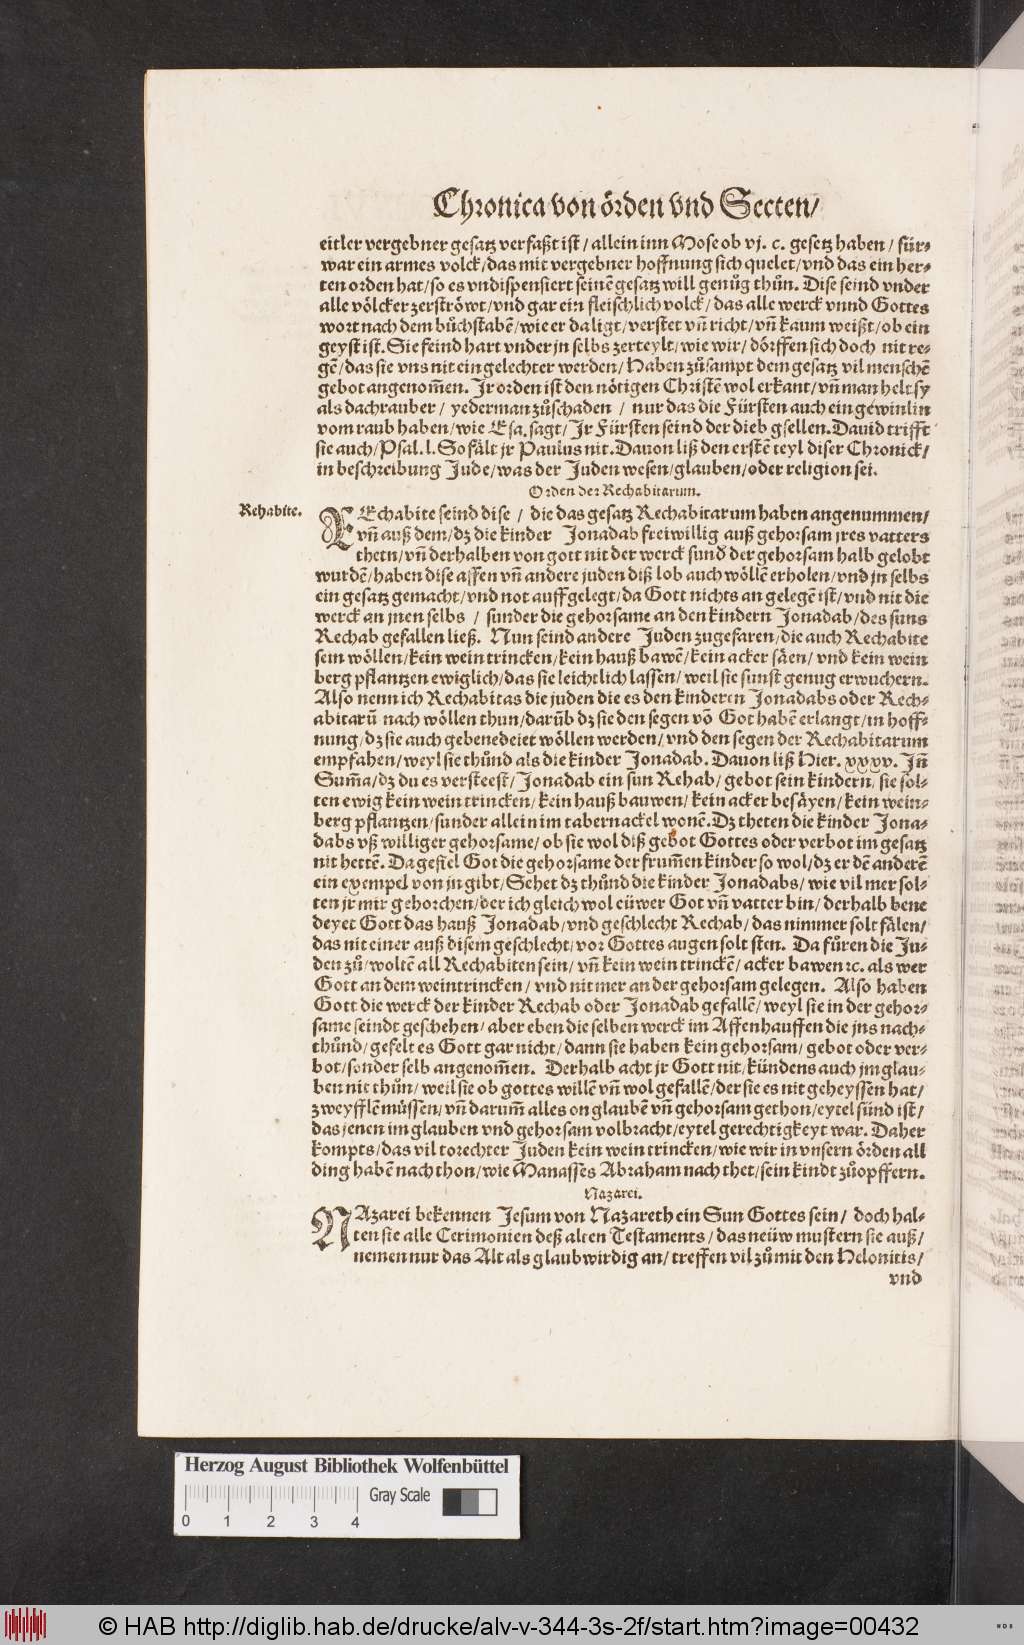 Chronica von örden vnd Secten/
eitler vergebner gesatz verfaßt ist / allein inn Mose ob vj. c. gesetz haben / für⸗
war ein armes volck/das mit vergebner hoffnung sich quelet/vnd das ein her⸗
ten orden hat/so es vndispensiert seinē gesatz will genůg thůn. Dise seind vnder
alle völcker zerströwt/vnd gar ein fleischlich volck/ das alle werck vnnd Gottes
wort nach dem bůchstabē/wie er da ligt/verstet vñ richt/vñ kaum weißt/ob ein
geyst ist. Sie seind hart vnder jn selbs zerteylt/wie wir/ dörffen sich doch nit re⸗
gē/das sie vns nit ein gelechter werden/Haben zůsampt dem gesatz vil menschē
gebot angenom̄en. Jr orden ist den nötigen Christē wol erkant/vñ man helt sy
als dachrauber / yederman zůschaden / nur das die Fürsten auch ein gewinlin
vom raub haben/wie Esa. sagt/Jr Fürsten seind der dieb gsellen. Dauid trifft
sie auch/Psal. l. So fält jr Paulus nit. Dauon liß den erstē teyl diser Chronick/
in beschreibung Jude/was der Juden wesen/glauben/oder religion sei.
Orden der Rechabitarum.
Rehabite.
REchabite seind dise / die das gesatz Rechabitarum haben angenummen/
vñ auß dem/dz die kinder Jonadab freiwillig auß gehorsam jres vatters
thetn/vñ derhalben von gott nit der werck sund̄ der gehorsam halb gelobt
wurdē/haben dise affen vñ andere juden diß lob auch wöllē erholen/vnd jn selbs
ein gesatz gemacht/vnd not auffgelegt/da Gott nichts an gelegē ist/vnd nit die
werck an jnen selbs / sunder die gehorsame an den kindern Jonadab/des suns
Rechab gefallen ließ. Nun seind andere Juden zugefaren/die auch Rechabite
sein wöllen/kein wein trincken/kein hauß bawē/kein acker säen/ vnd kein wein
berg pflantzen ewiglich/das sie leichtlich lassen/ weil sie sunst genug erwuchern.
Also nenn ich Rechabitas die juden die es den kinderen Jonadabs oder Rech⸗
abitarū nach wöllen thun/darūb dz sie den segen võ Got habē erlangt/in hoff⸗
nung/dz sie auch gebenedeiet wöllen werden/vnd den segen der Rechabitarum
empfahen/weyl sie thůnd als die kinder Jonadab. Dauon liß Hier. xxxv. Jñ
Sum̄a/dz du es versteest/Jonadab ein sun Rehab/gebot sein kindern/sie sol⸗
ten ewig kein wein trincken/kein hauß bauwen/kein acker besäyen/kein wein⸗
berg pflantzen/sunder allein im tabernackel wonē. Dz theten die kinder Jona⸗
dabs vß williger gehorsame/ob sie wol diß gebot Gottes oder verbot im gesatz
nit hettē. Da gefiel Got die gehorsame der frum̄en kinder so wol/dz er dē anderē
ein exempel von jn gibt/Sehet dz thůnd die kinder Jonadabs/wie vil mer sol⸗
ten jr mir gehorchen/der ich gleich wol eüwer Got vñ vatter bin/derhalb bene
deyet Gott das hauß Jonadab/vnd geschlecht Rechab/das nimmer solt fälen/
das nit einer auß disem geschlecht/vor Gottes augen solt sten. Da fůren die Ju⸗
den zů/woltē all Rechabiten sein/vñ kein wein trinckē/ acker bawen ꝛc. als wer
Gott an dem weintrincken/ vnd nit mer an der gehorsam gelegen. Also haben
Gott die werck der kinder Rechab oder Jonadab gefallē/weyl sie in der gehor⸗
same seindt geschehen/aber eben die selben werck im Affenhauffen die jns nach⸗
thůnd/gefelt es Gott gar nicht/dann sie haben kein gehorsam/gebot oder ver⸗
bot/sonder selb angenom̄en. Derhalb acht jr Gott nit/kündens auch jm glau⸗
ben nit thůn/weil sie ob gottes willē vñ wol gefallē/der sie es nit geheyssen hat/
zweyfflē müssen/vñ darum̄ alles on glaubē vñ gehorsam gethon/eytel sünd ist/
das jenen im glauben vnd gehorsam volbracht/eytel gerechtigkeyt war. Daher
kompts/das vil torechter Juden kein wein trincken/wie wir in vnsern örden all
ding habē nach thon/wie Manasses Abraham nach thet/sein kindt zůopffern.
Nazarei.
NAzarei bekennen Jesum von Nazareth ein Sun Gottes sein/ doch hal⸗
ten sie alle Cerimonien deß alten Testaments/das neüw mustern sie auß/
nemen nur das Alt als glaubwirdig an/treffen vil zů mit den Helonitis/
vnd
Herzog August Bibliothek Wolfenbüttel
Gray Scale
0 1 2 3 4
© HAB http://diglib.hab.de/drucke/alv-v-344-3s-2f/start.htm?image=00432